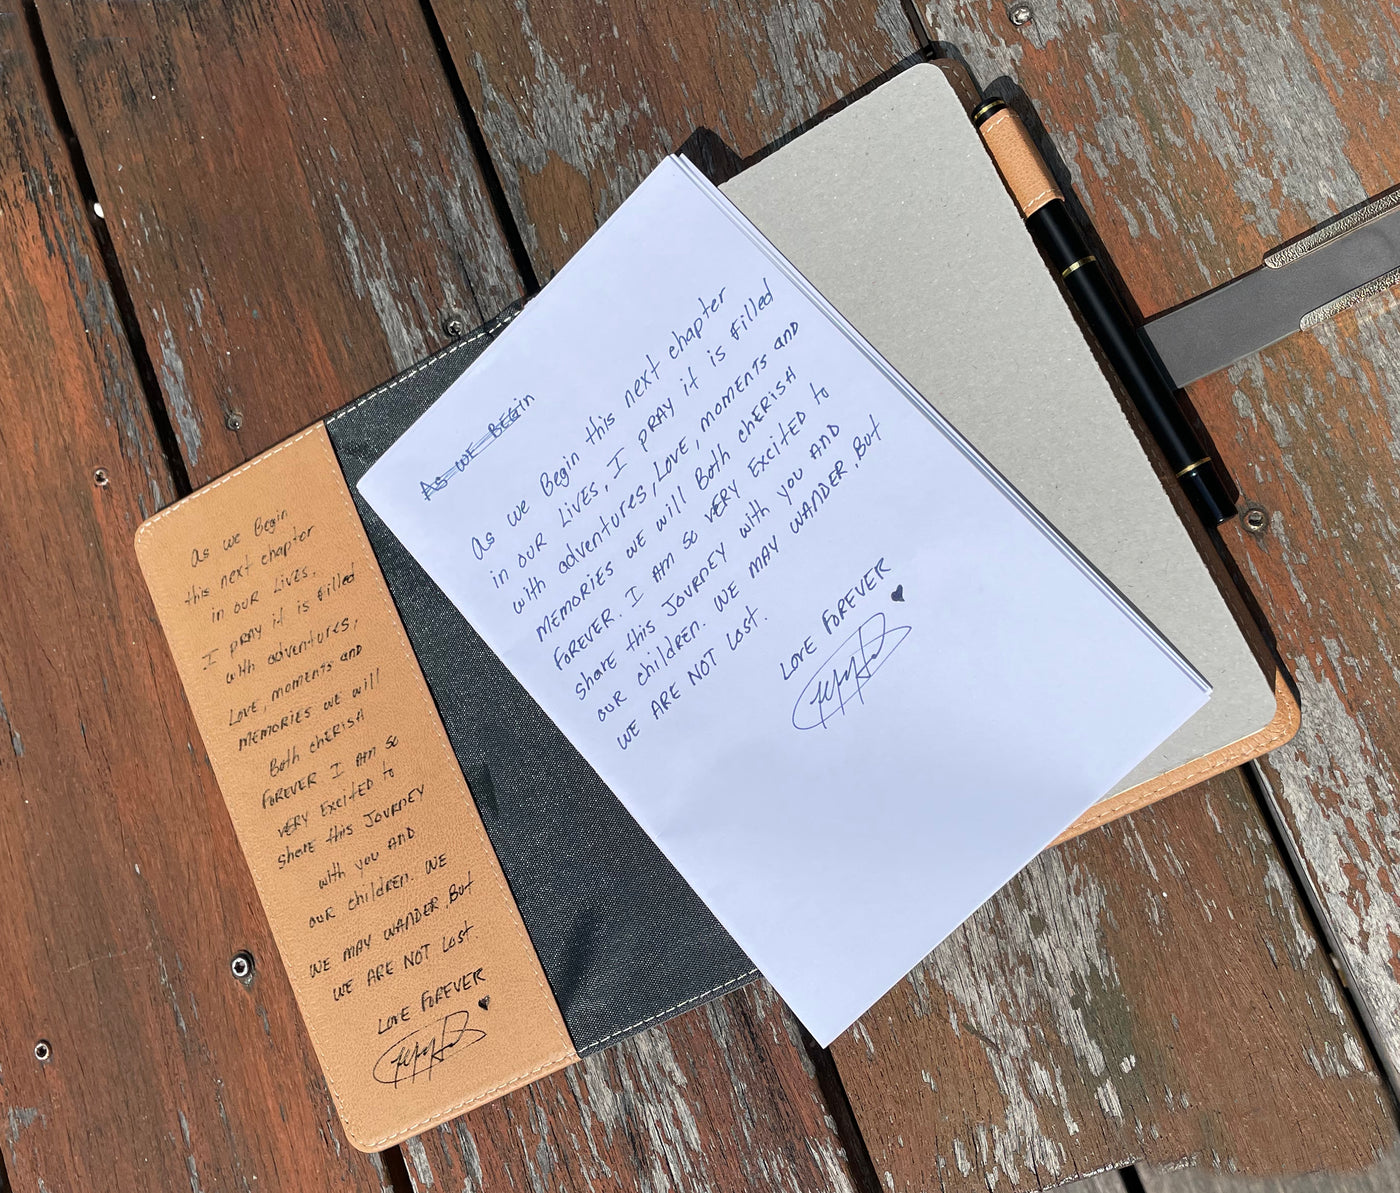 As we Begin
this next chapter
in our Lives,
I pray it is filled
with adventures,
Love, moments and
memories we will
Both cherish
forever. I am so
very excited to
share this Journey
with you and
our children. We
we may wander, But
we are not Lost.
Love forever
As we Begin
As we Begin this next chapter
in our Lives, I pray it is filled
with adventures, Love, moments and
memories we will Both cherish
forever. I am so very excited to
share this Journey with you and
our children. We may wander, But
we are not Lost.
Love forever